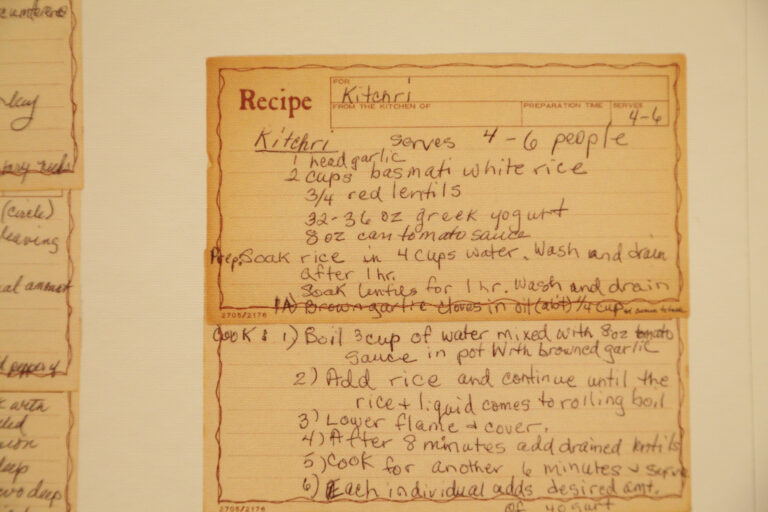 kay
(circle)
leaving
with
deep
Recipe
FOR
Kitchri
FROM THE KITCHEN OF
PREPARATION TIME
SERVES
4-6
Kitchri serves 4-6 people
1 head garlic
2 cups basmati white rice
3/4 red lentils
32-36 oz greek yogurt
8 oz can tomato sauce
Prep. Soak rice in 4 cups water. Wash and drain
after 1 hr.
Soak lentils for 1 hr. Wash and drain
1A) Brown garlic cloves in oil (abt) 1/4 cup
2705/2176
Cook: 1) Boil 3 cup of water mixed with 8 oz tomato
sauce in pot with browned garlic
2) Add rice and continue until the
rice + liquid comes to rolling boil
3) Lower flame + cover.
4) After 8 minutes add drained lentils
5) Cook for another 6 minutes + serve
6) Each individual adds desired amt.
of yogurt
2705/2176